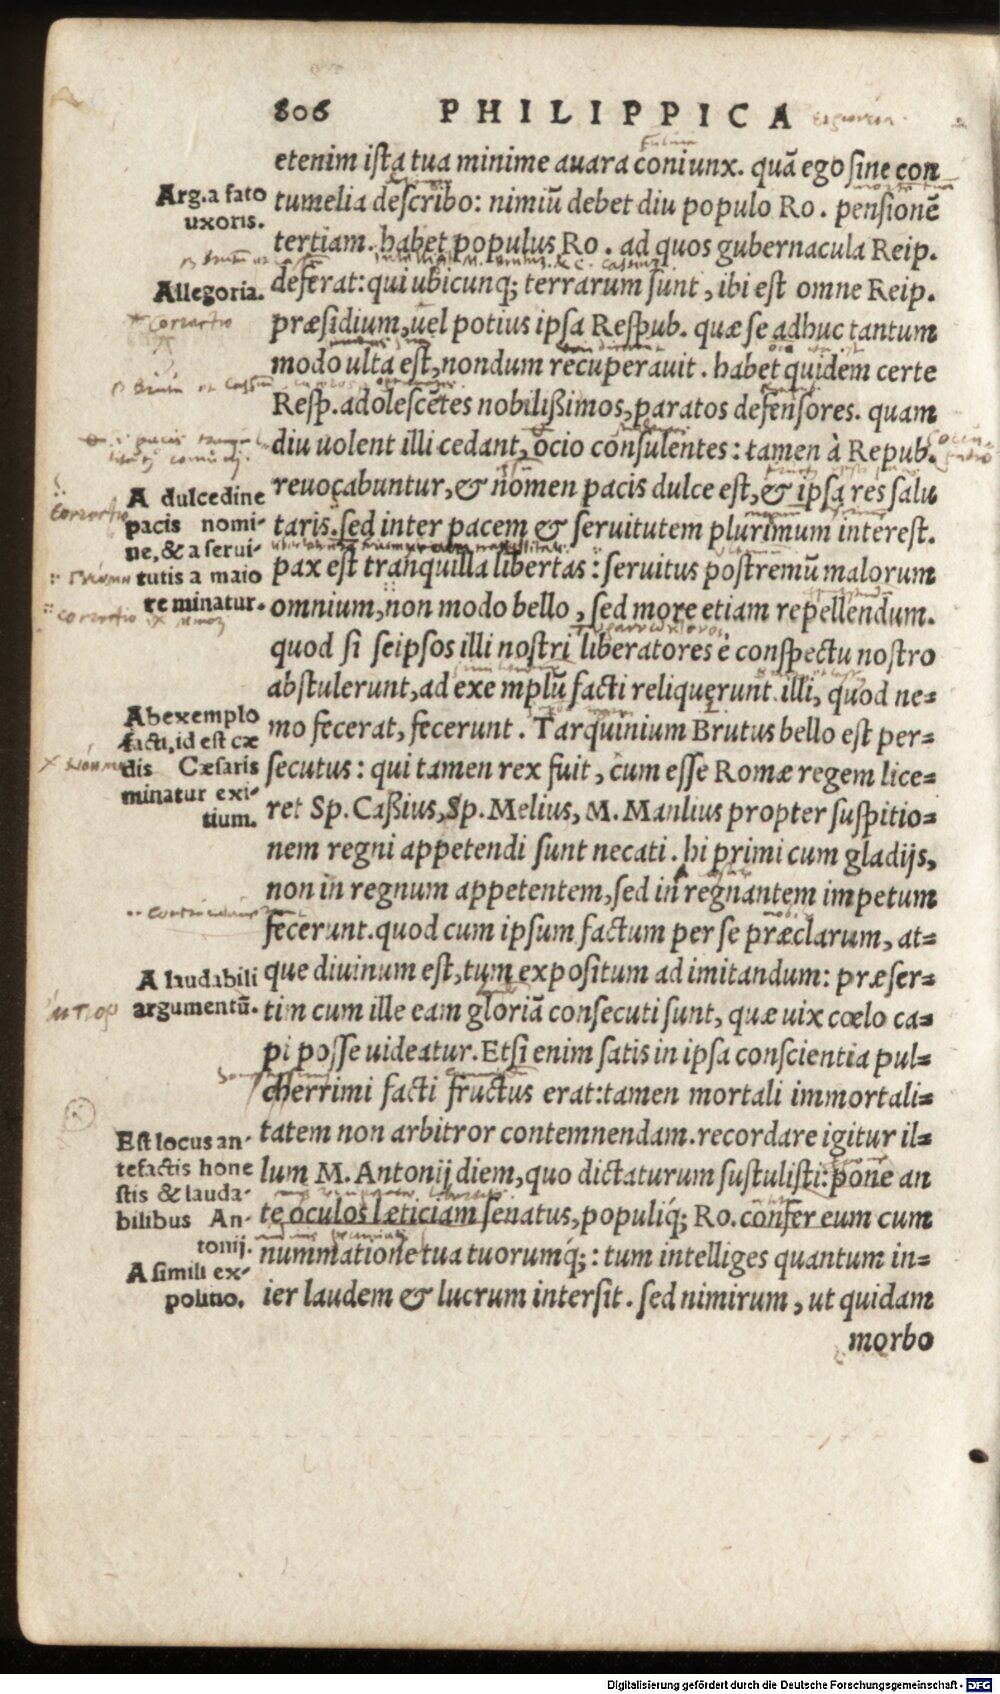 806 PHILIPPICA
etenim ista tua minime auara coniunx. quā ego sine con
tumelia describo: nimiū debet diu populo Ro. pensionē
tertiam. habet populus Ro. ad quos gubernacula Reip.
deferat: qui ubicunq; terrarum sunt, ibi est omne Reip.
præsidium, uel potius ipsa Respub. quæ se adhuc tantum
modo ulta est, nondum recuperauit. habet quidem certe
Resp. adolescētes nobilißimos, paratos defensores. quam
diu uolent illi cedant, ocio consulentes: tamen à Repub.
reuocabuntur, & nomen pacis dulce est, & ipsa res salu
taris. sed inter pacem & seruitutem plurimum interest.
pax est tranquilla libertas: seruitus postremū malorum
omnium, non modo bello, sed morte etiam repellendum.
quod si seipsos illi nostri liberatores è conspectu nostro
abstulerunt, ad exemplū facti reliquerunt. illi, quod ne=
mo fecerat, fecerunt. Tarquinium Brutus bello est per=
secutus: qui tamen rex fuit, cum esse Romæ regem lice=
ret Sp. Caßius, Sp. Melius, M. Manlius propter suspitio=
nem regni appetendi sunt necati. hi primi cum gladijs,
non in regnum appetentem, sed in regnantem impetum
fecerunt. quod cum ipsum factum per se præclarum, at=
que diuinum est, tum expositum ad imitandum: præser=
tim cum ille eam gloriā consecuti sunt, quæ uix cœlo ca=
pi posse uideatur. Etsi enim satis in ipsa conscientia pul=
cherrimi facti fructus erat: tamen mortali immortali=
tatem non arbitror contemnendam. recordare igitur il=
lum M. Antonij diem, quo dictaturum sustulisti: pone an
te oculos læticiam senatus, populiq́; Ro. confer eum cum
nummatione tua tuorumq́;: tum intelliges quantum in=
ier laudem & lucrum intersit. sed nimirum, ut quidam
morbo
Arg. a fato
uxoris.
Allegoria.
Correctio
A dulcedine
pacis nomi-
ne, & a serui-
tutis a maio
re minatur.
Correctio
Ab exemplo
facti, id est cæ
dis Cæsaris
minatur exi-
tium.
A laudabili
argumentū.
Est locus an-
tefactis hone
stis & lauda-
bilibus An-
tonij.
A simili ex-
politio.
Digitalisierung gefördert durch die Deutsche Forschungsgemeinschaft - DFG